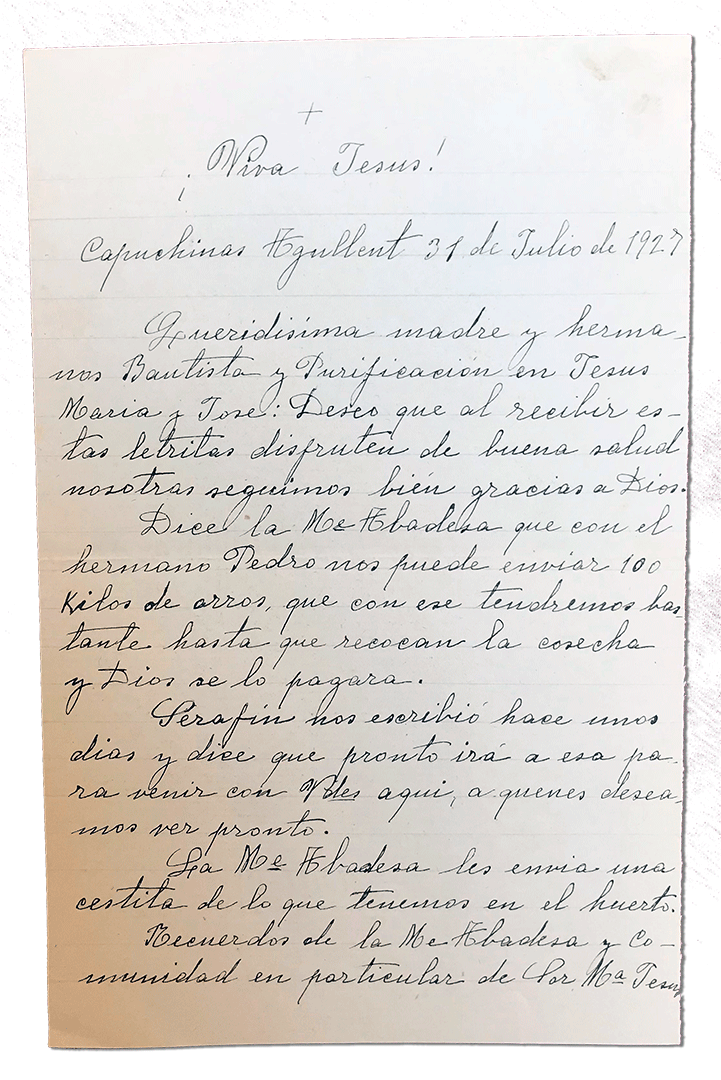 +
¡Viva Jesus!
Capuchinas Agullent 31 de Julio de 1927
Queridisima madre y herma-
nos Bautista y Purificación en Jesus
Maria y Jose: Deseo que al recibir es-
tas letritas disfruten de buena salud
nosotras seguimos bién gracias a Dios.
Dice la Me Abadesa que con el
hermano Pedro nos puede enviar 100
Kilos de arros, que con ese tendremos bas-
tante hasta que recocan la cosecha
y Dios se lo pagara.
Serafín nos escribió hace unos
dias y dice que pronto irá a esa pa-
ra venir con Vdes aqui, a quenes desea-
mos ver pronto.
La Me Abadesa les envia una
cestita de lo que tenemos en el huerto.
Recuerdos de la Me Abadesa y Co-
munidad en particular de Sor Ma Jesus